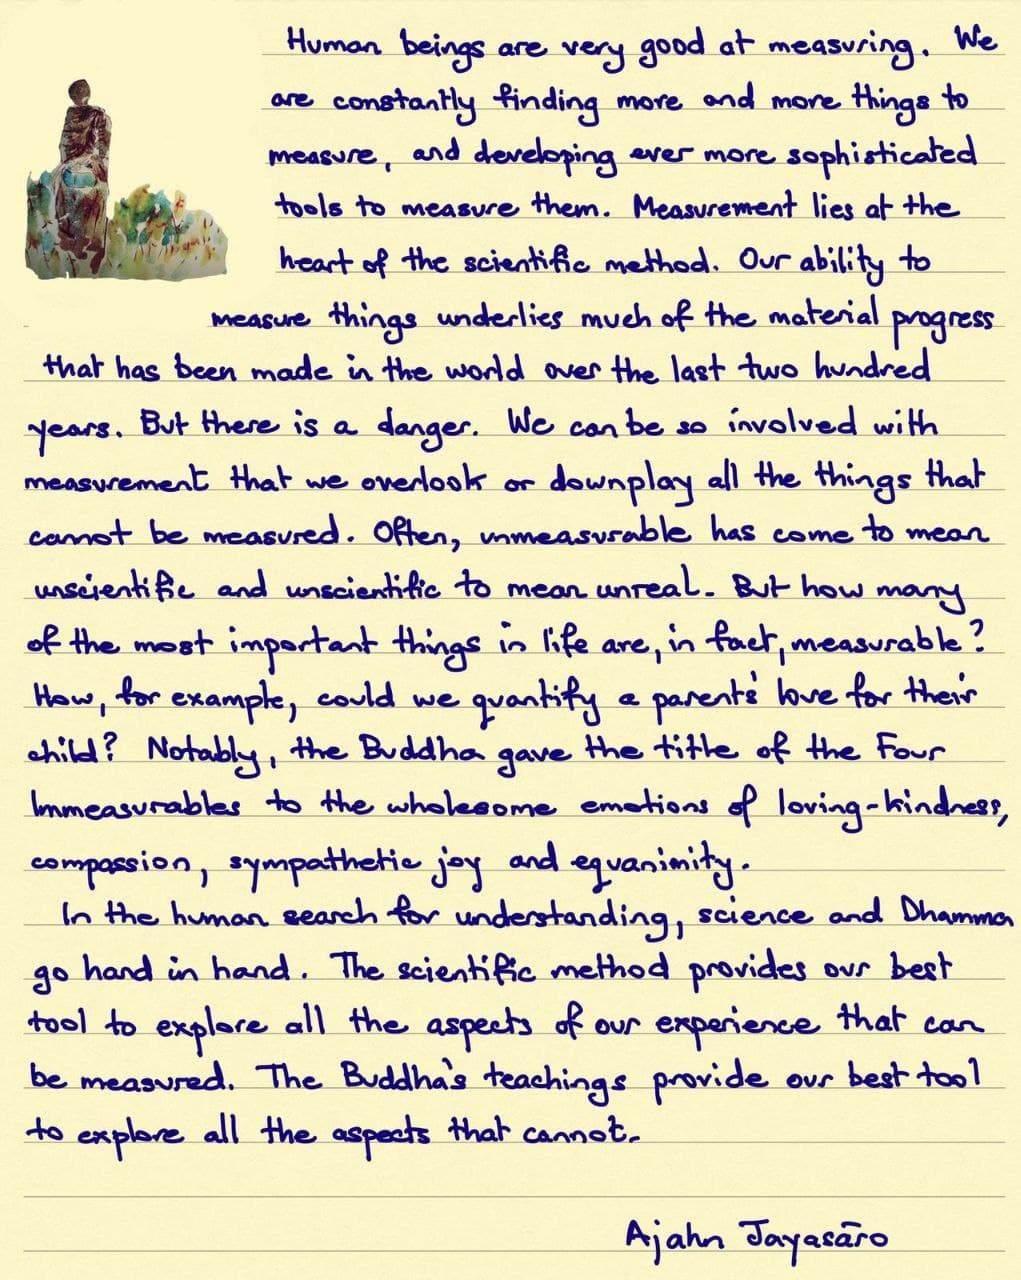 Human beings are very good at measuring. We
are constantly finding more and more things to
measure, and developing ever more sophisticated
tools to measure them. Measurement lies at the
heart of the scientific method. Our ability to
measure things underlies much of the material progress
that has been made in the world over the last two hundred
years. But there is a danger. We can be so involved with
measurement that we overlook or downplay all the things that
cannot be measured. Often, unmeasurable has come to mean
unscientific and unscientific to mean unreal. But how many
of the most important things in life are, in fact, measurable?
How, for example, could we quantify a parents' love for their
child? Notably, the Buddha gave the title of the Four
Immeasurables to the wholesome emotions of loving-kindness,
compassion, sympathetic joy and equanimity.
In the human search for understanding, science and Dhamma
go hand in hand. The scientific method provides our best
tool to explore all the aspects of our experience that can
be measured. The Buddha's teachings provide our best tool
to explore all the aspects that cannot.
Ajahn Jayasāro